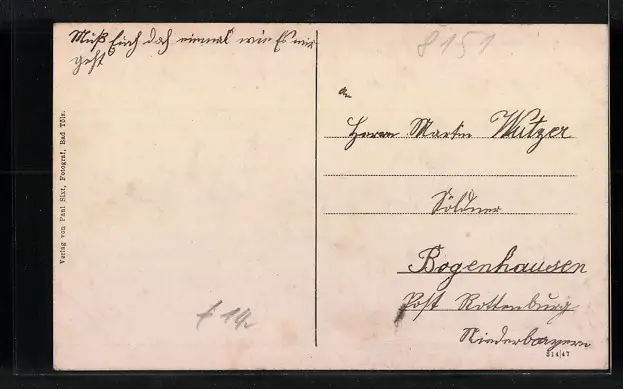 Muß Euch doch einmal wie Es mir
geht
8151
An
Herrn Martin Wutzer
Söldner
Bogenhausen
Post Rottenburg
Niederbayern
314/47
Verlag von Paul Sixt, Fotograf, Bad Tölz.